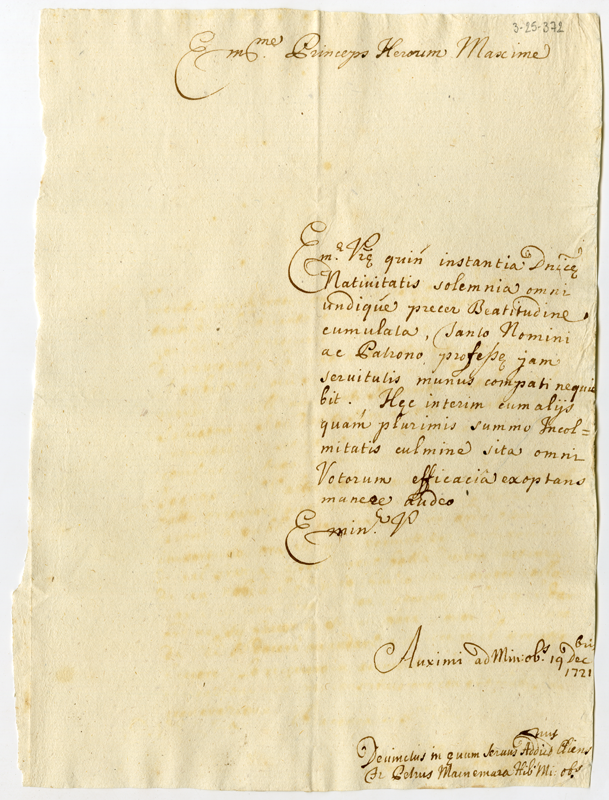 3-25-372
Em.me Princeps Herorum Maxime
Em.ę Vrę quin̄ instantia Dnicę
Nativitatis solemnia omni
undique precer Beatitudine
cumulata, Santo Nomini
ac Patrono professę jam
servitutis munus compati nequi
bit. Hęc interim cum alijs
quam plurimis summo Incol=
mitatis culmine sita omni
Votorum efficacia exoptans
munere audeo
Emin.ę V
Auximi ad Min: obs. 19 Xbris
Dec
1721
Devinctus in quum servus Addict.mus Cliens
Fr Petrus Macnemara Hib. Mi: obs.